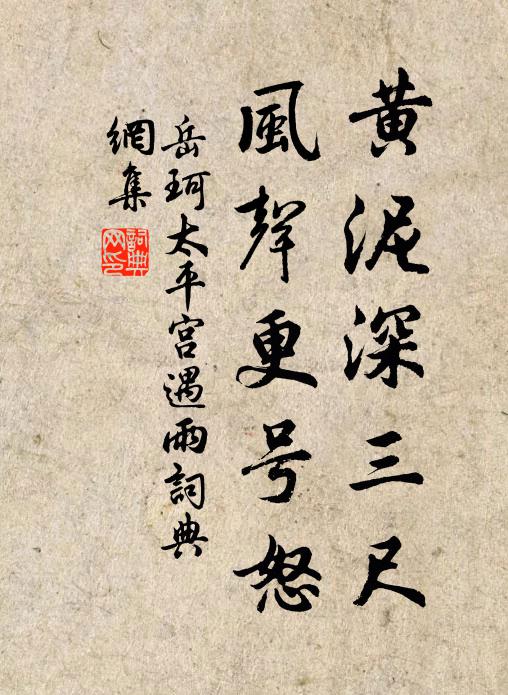 黄泥深三尺
風聲更号怒
岳珂太平宮遇雨詞典
網集
詞典網印